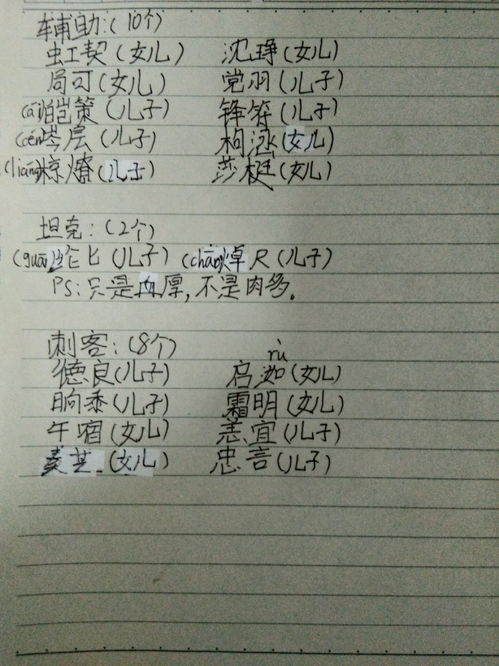 辅助:(10个)
虹契(女儿) 沈琤(女儿)
局可(女儿) 党羽(儿子)
恺策(儿子) 锋符(儿子)
(cén)岑层(儿子) 枸涵(女儿)
(liáng)椋燎(儿子) 莎梃(女儿)
坦克:(2个)
(guān)纶匕(儿子) (chāo)焯尺(儿子)
PS:只是肉厚,不是肉多。
刺客:(8个)
rù
德良(儿子) 启洳(女儿)
晌黍(儿子) 霜明(女儿)
午宿(女儿) 恚宜(儿子)
(女儿) 忠言(儿子)